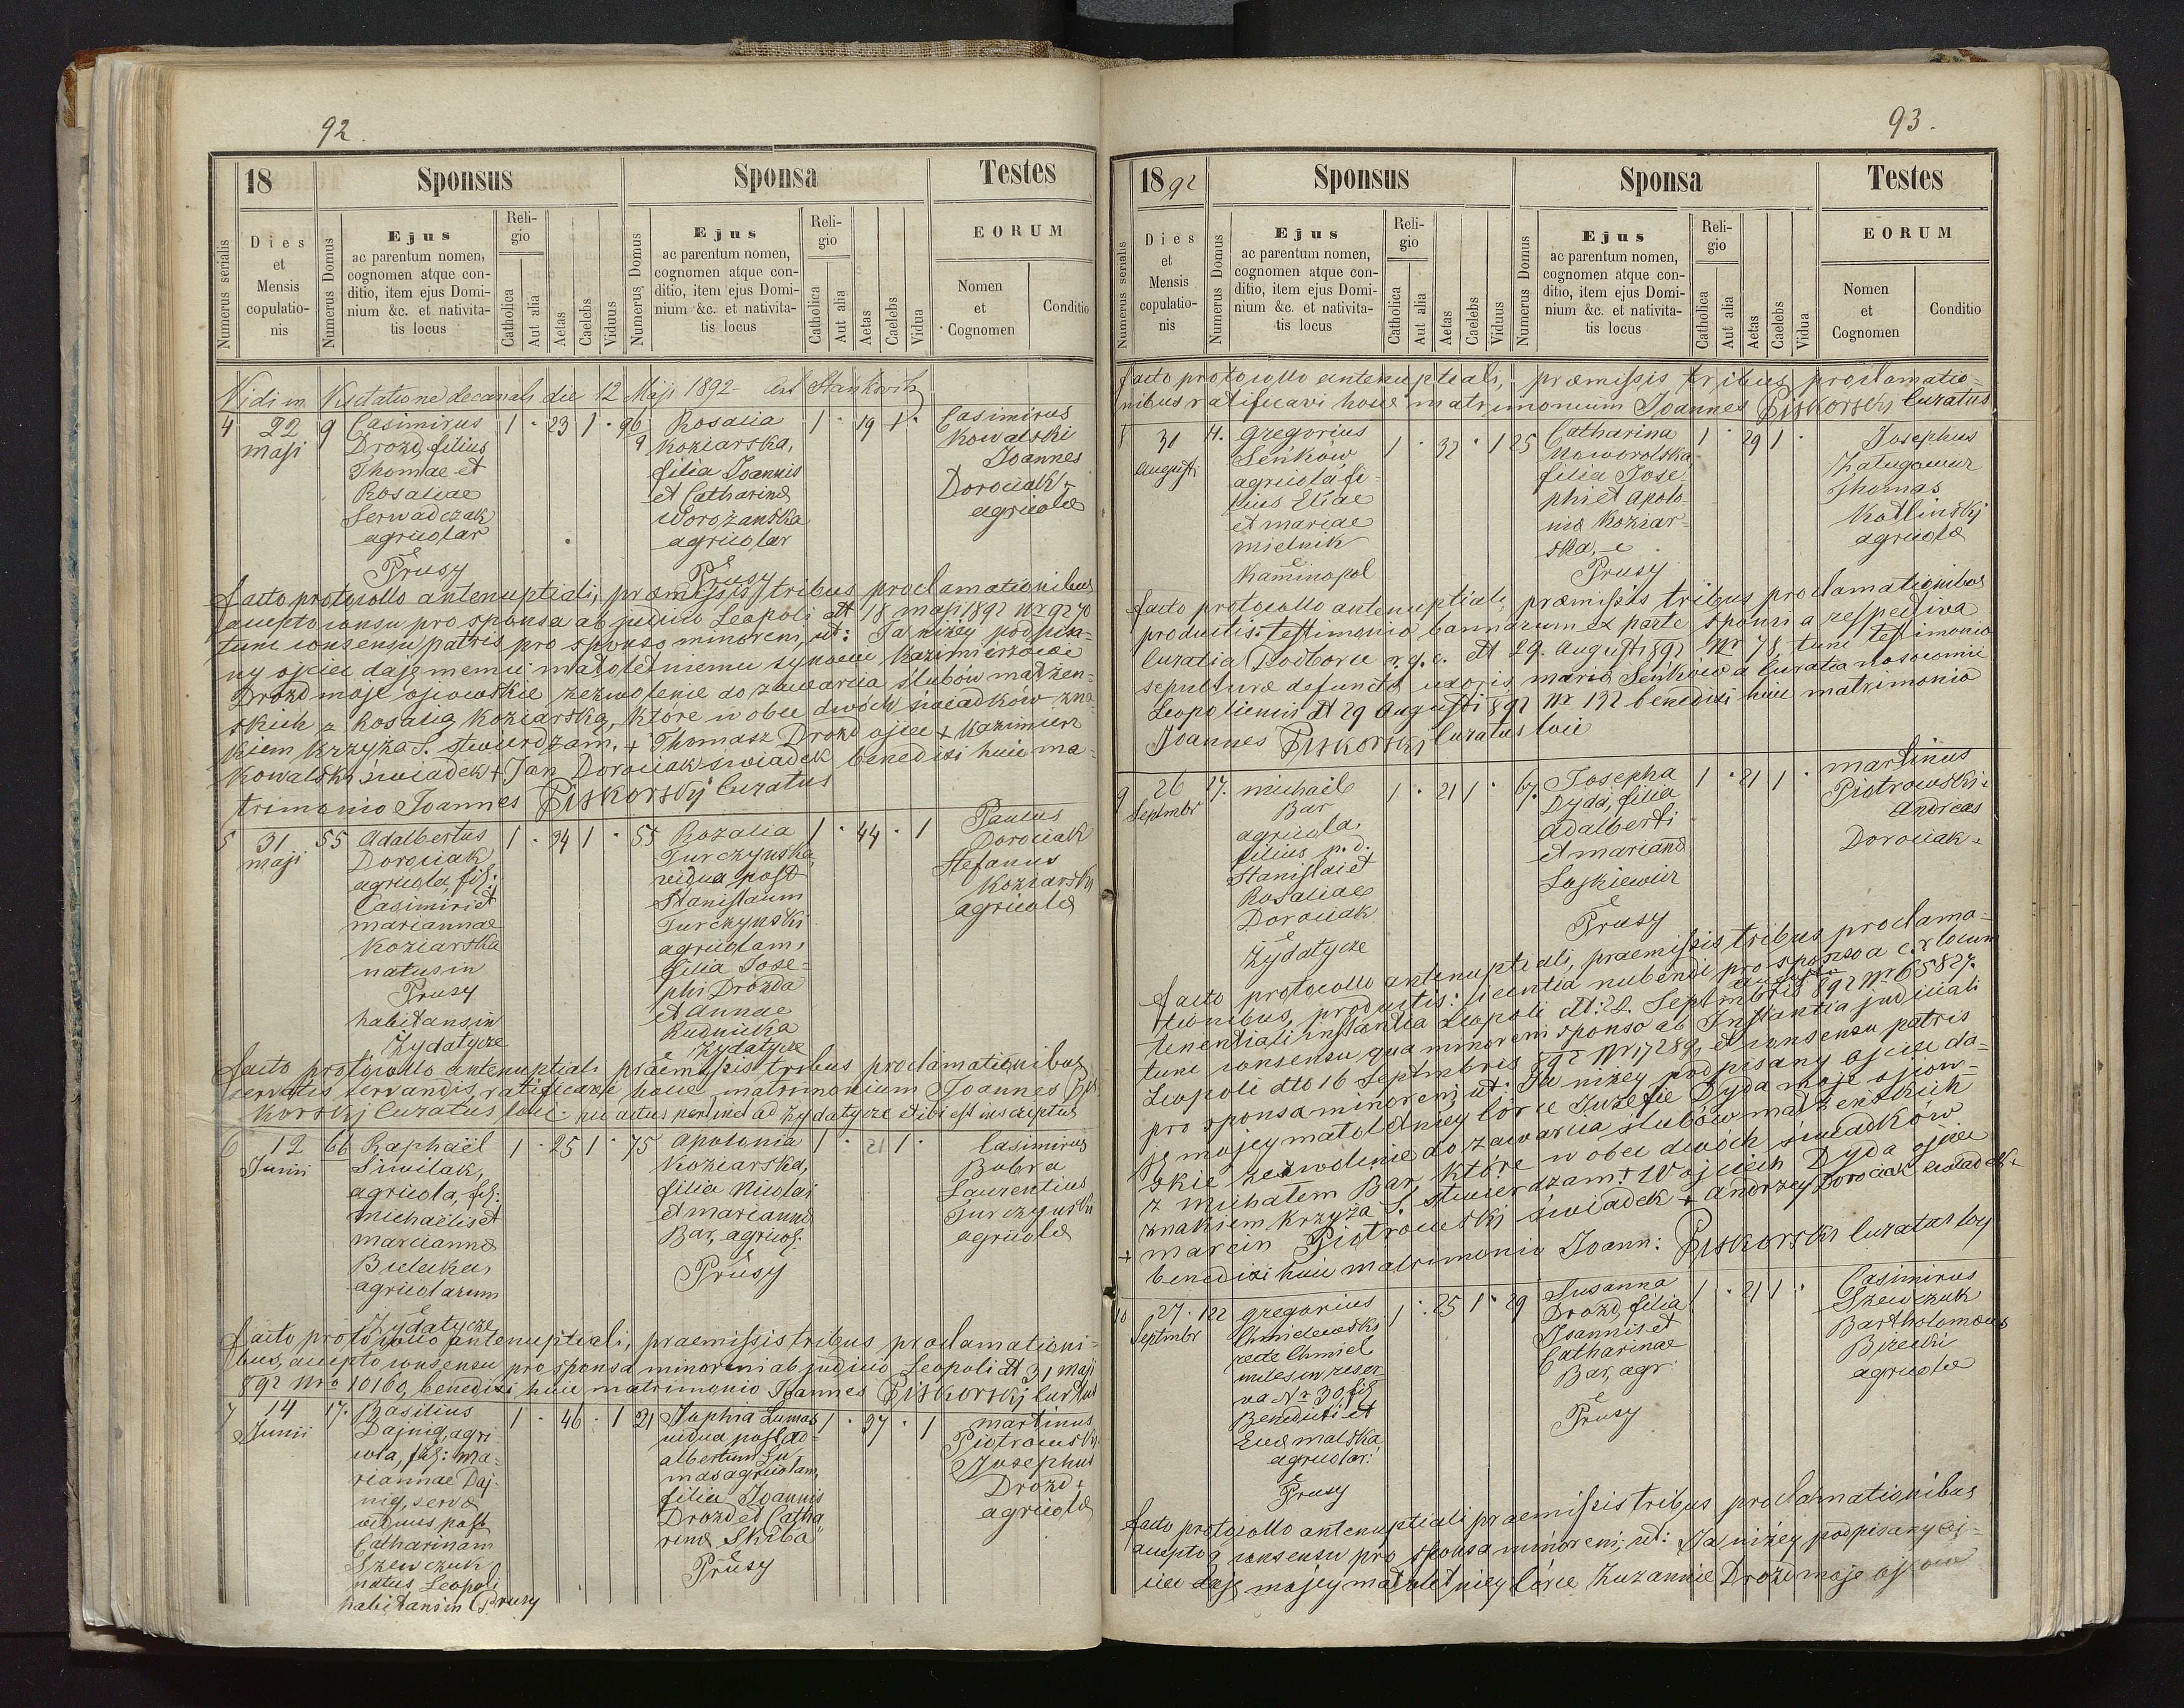 92.
18
Sponsus
Sponsa
Testes
Numerus serialis
Dies
et
Mensis
copulatio-
nis
Numerus Domus
Ejus
ac parentum nomen,
cognomen atque con-
ditio, item ejus Domi-
nium &c. et nativita-
tis locus
Reli-
gio
Catholica
Aut alia
Aetas
Caelebs
Viduus
Numerus Domus
Ejus
ac parentum nomen,
cognomen atque con-
ditio, item ejus Domi-
nium &c. et nativita-
tis locus
Reli-
gio
Catholica
Aut alia
Aetas
Caelebs
Vidua
EORUM
Nomen
et
Cognomen
Conditio
Vidi in Visitatione decanali die 12 Maji 1892
4
22
maji
9
Casimirus
Drozd, filius
Thomae et
Rosaliae
Serwadczak
agricolar
è
Prusy
1 · 23 1 ·
96
9
Rosalia
Koziarska,
filia Joannis
et Catharinæ
Worożanska
agricolar
è
Prusy
1 · 19 1 ·
Casimirus
Kowalski
Joannes
Dorociak
agricolæ
facto protocollo antenuptiali, præmissis tribus proclamationibus
accepto consu pro sponsa ab judicio Leopoli dt 18 maji 892 Nr 9270
tum consensu patris pro sponso minoreni, ut: Ja niżey podpisa-
ny ojciec daję memu małoletniemu synowi Kazimierzowi
Drozd moje ojcowskie zezwolenie do zawarcia ślubów małżen-
skich z Rosalią Koziarską, które w obec dwóch świadków zna-
kiem krzyża S. stwierdzam. + Thomasz Drozd ojciec + Kazimierz
Kowalski świadek + Jan Dorociak świadek benedixi huic ma-
trimonio Joannes Piskorskj Curatus
5
31
maji
55
Adalbertus
Dorociak
agricola, fil:
Casimiri et
mariannae
Koziarska
natus in
Prusy
habitans in
Zydatycze
1 · 34 1 ·
55
Rozalia
Turczynska,
vidua post
Stanislaum
Turczynski
agricolam,
filia Jose-
phi Drozda
et Annae
Rudnicka
è Zydatycze
1 · 44 · 1
Paulus
Dorociak
Stefanus
Koziarskj
agricolæ
facto protocollo antenuptiali praemissis tribus proclamationibus
servatis servandis, ratificavi hocce matrimonium Joannes Pis-
korskj Curatus loci hic actus pertinet ad Zydatycze et ibi est inscriptus
6
12
Junii
66
Raphaël
Siwilak,
agricola, fil:
michaëlis et
mariannæ
Bielecka,
agricolarum
è
Zydatycze
1 · 25 1 ·
75
Apolonia
Koziarska,
filia Nicolai
et mariannæ
Bar, agricol:
è
Prusy
1 · 21 1 ·
Casimirus
Bobra
Laurentius
Turczynski
agricolæ
facto protocollo antenuptiali, praemissis tribus proclamationi-
bus, accepto consensu pro sponsa minoreni ab judicio Leopoli dt 31 maji
892 Nro 10160, benedixi huic matrimonio Joannes Piskorskj Curatus
7
14
Junii
17.
Basilius
Dajnig, agri-
cola, fil: Ma-
riannae Daj-
nig, servæ
viduus post
Catharinam
Szewczuk
natus Leopoli
habitans in Prusy
1 · 46 · 1
21
Sophia Lumas
vidua post Ad-
albertum Lu-
mas agricolam,
filia Joannis
Drozd et Catha-
rinæ Skiba
è
Prusy
1 · 37 · 1
Martinus
Piotrowskj
Josephus
Drozd
agricolæ
93.
1892
Sponsus
Sponsa
Testes
Numerus serialis
Dies
et
Mensis
copulatio-
nis
Numerus Domus
Ejus
ac parentum nomen,
cognomen atque con-
ditio, item ejus Domi-
nium &c. et nativita-
tis locus
Reli-
gio
Catholica
Aut alia
Aetas
Caelebs
Viduus
Numerus Domus
Ejus
ac parentum nomen,
cognomen atque con-
ditio, item ejus Domi-
nium &c. et nativita-
tis locus
Reli-
gio
Catholica
Aut alia
Aetas
Caelebs
Vidua
EORUM
Nomen
et
Cognomen
Conditio
facto protocollo antenuptiali, præmissis tribus proclamatio-
nibus ratificavi hocce matrimonium Joannes Piskorskj Curatus
8
31
Augusti
4.
Gregorius
Seńków
agricola fi-
lius Eliae
et mariae
mielnik
è
Kaminopol
1 · 32 · 1
25
Catharina
Noworolska
filia Jose-
phi et Apolo-
niæ Koziar-
ska, è
Prusy
1 · 29 1 ·
Josephus
Thomas
Kotlinskj
agricolæ
facto protocollo antenuptiali, præmissis tribus proclamationibus
productis: testimonio bannorum ex parte sponsi a respectiva
Curatia Podborce r. g. c. dt 29. Augusti 892 Nr 78, tum testimonio
sepulturæ defunctæ uxoris mariæ Seńków a Curatia nosocomii
Leopoliensis dt 29 Augusti 892 Nr 132 benedixi huic matrimonio
Joannes Piskorskj Curatus loci
9
26
Septmbr
17.
michaël
Bar
agricola,
filius p. d.
Stanislai et
Rosaliae
Dorociak
è
Zydatycze
1 · 21 1 ·
67.
Josepha
Dyda, filia
Adalberti
et mariannæ
Laskiewicz
è
Prusy
1 · 21 1 ·
martinus
Piotrowski
Andreas
Dorociak
facto protocollo antenuptiali, praemissis tribus proclama-
tionibus, productis: licentia nubendi pro sponso a c. r locum
tenentiali instantia Leopoli dt: 2. Septmbris 892 Nr 65827.
tum consensu qua minoreni sponso ab Instantia judiciali
Leopoli dto 16 Septmbris 892 Nr 17289, et consensu patris
pro sponsa minoreni ut: Ja niżey podpisany ojciec da-
ję mojey małoletniey córce Juzefie Dyda moje ojcow-
skie zezwolenie do zawarcia ślubów małżenskich
z michałem Bar, które w obec dwóch świadków
znakiem krzyża S. stwierdzam. + Wojciech Dyda ojciec
+ marcin Piotrowskj świadek + Andrzey Dorociak świadek.
benedixi huic matrimonio Joann: Piskorskj Curatus loci
10
27.
Septmbr
122
Gregorius
Chmielewski
recte Chmiel
miles in reser-
va Nr 30, fil:
Benedicti et
Evæ malska
agricolar:
è
Prusy
1 · 25 1 ·
29
Susanna
Drozd, filia
Joannis et
Catharinae
Bar, agr:
è
Prusy
1 · 21 1 ·
Casimirus
Szewczuk
Bartholomæus
Bizecki
agricolæ
facto protocollo antenuptiali praemissis tribus proclamationibus
accepto consensu pro sponsa minoreni, ut: Ja niżey podpisany oj-
ciec daję mojey małoletniey córce Zuzannie Drozd moje ojcow